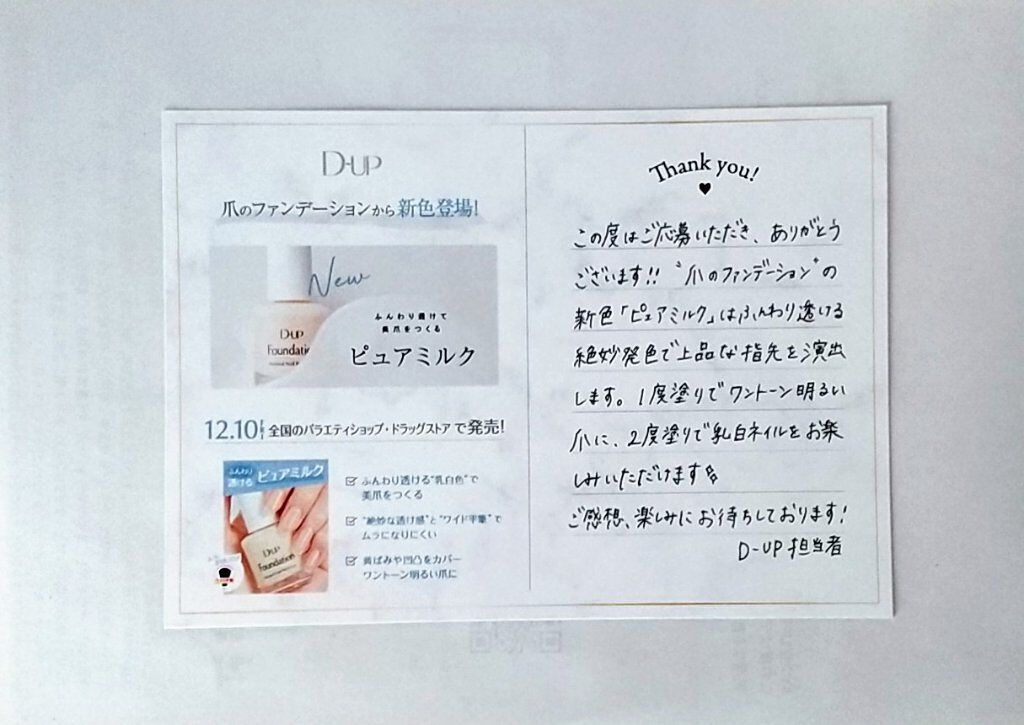 D-UP
爪のファンデーションから新色登場!
New
ふんわり透けて
美爪をつくる
D-UP
Foundatio
ピュアミルク
12.10
全国のバラエティショップ・ドラッグストアで発売!
ふんわり
透ける ピュアミルク
D-UP
Foundation
ふんわり透ける"乳白色"で
美爪をつくる
"絶妙な透け感"と"ワイド平筆"で
ムラになりにくい
黄ばみや凹凸をカバー
ワントーン明るい爪に
Thank you!
この度はご応募いただき、ありがとう
ございます!!"爪のファンデーション"の
新色「ピュアミルク」はふんわり透ける
絶妙発色で上品な指先を演出
します。1度塗りでワントーン明るい
爪に、2度塗りで乳白ネイルをお楽
しみいただけます
ご感想、楽しみにお待ちしております!
D-UP 担当者